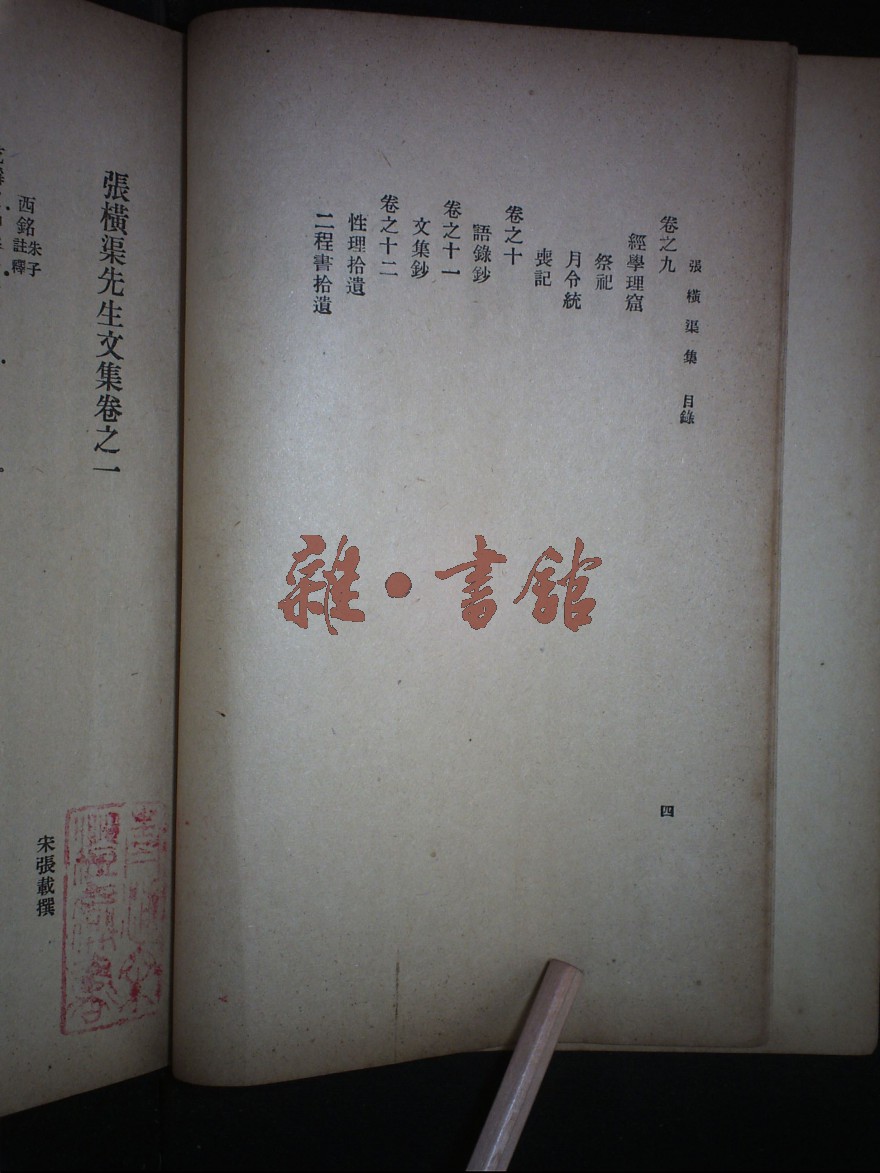 張橫渠集 目錄
四
卷之九
經學理窟
祭祀
月令統
喪記
卷之十
語錄鈔
卷之十一
文集鈔
卷之十二
性理拾遺
二程書拾遺
雜·書館
張橫渠先生文集卷之一
宋張載撰
西銘 朱子註釋